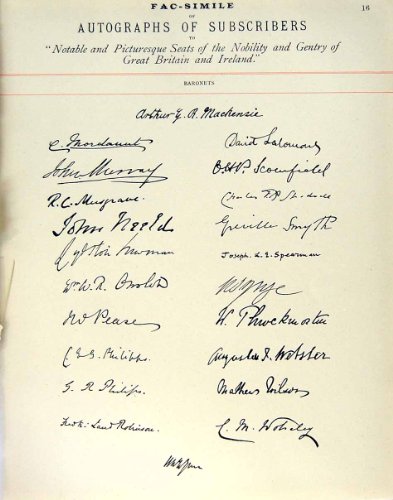 FAC-SIMILE
16
OF
AUTOGRAPHS OF SUBSCRIBERS
TO
"Notable and Picturesque Seats of the Nobility and Gentry of
Great Britain and Ireland."
BARONETS
Arthur G. R. Mackenzie
C. Mordaunt
David Salomons
John Murray
Scourfield
R. C. Musgrave.
Charles
John Neeld
Greville Smyth
Newman
Joseph L. E. Spearman
Wm W. R. Onslow
Pease
W. Throckmorton
C E G Philipps.
Augustus F. Webster
G. R. Philips.
Mathew Wilson
Fredk: Laud Robinson.
C. M. Wolseley